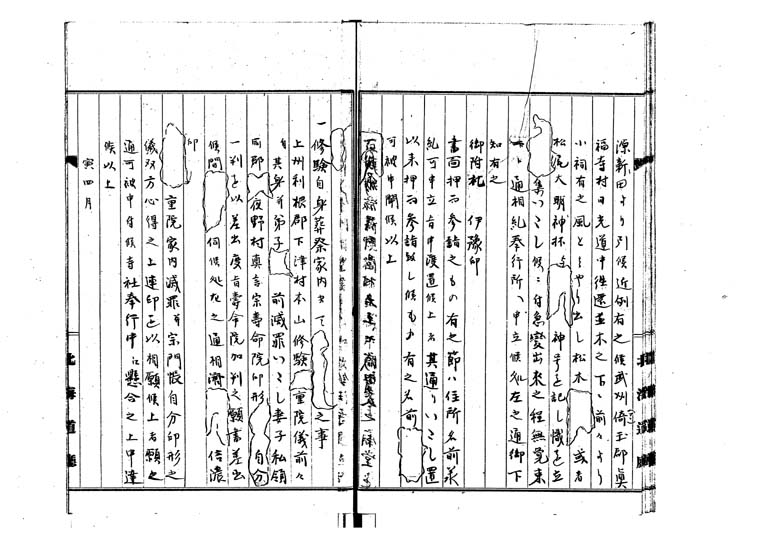 源新田より引候近例有之候武州倚玉郡真
福寺村日光道中往還並木之下ニ前々より
小祠有之風としやり出し松木 或者
松尾大明神杯与 神号を記し幟を立
集いたし候ニ付急変出来之程無覚束
通相糺奉行所へ申立候処左之通御下
知有之
御附札 伊豫印
書面押而参詣之もの有之節ハ住所名前承
糺可申立旨申渡置候上者其通りいたし置
以来押而参詣致し候もの有之名前
可被申聞候以上
一修験自身葬祭家内 之事
上州利根郡下津村本山修験 重院儀前々
其身并弟子 前滅罪いたし妻子私領
同郡 後野村真言宗寿命院印形 自分
一判を以差出度旨寿命院加判之願書差出
候間 伺候処左之通相済 信濃
印
重院家内滅罪并宗門帳自分印形之
儀双方心得之上連印を以相願候上者願之
通可被申付候寺社奉行中江懸合之上申達
候以上
寅四月
北海道庁